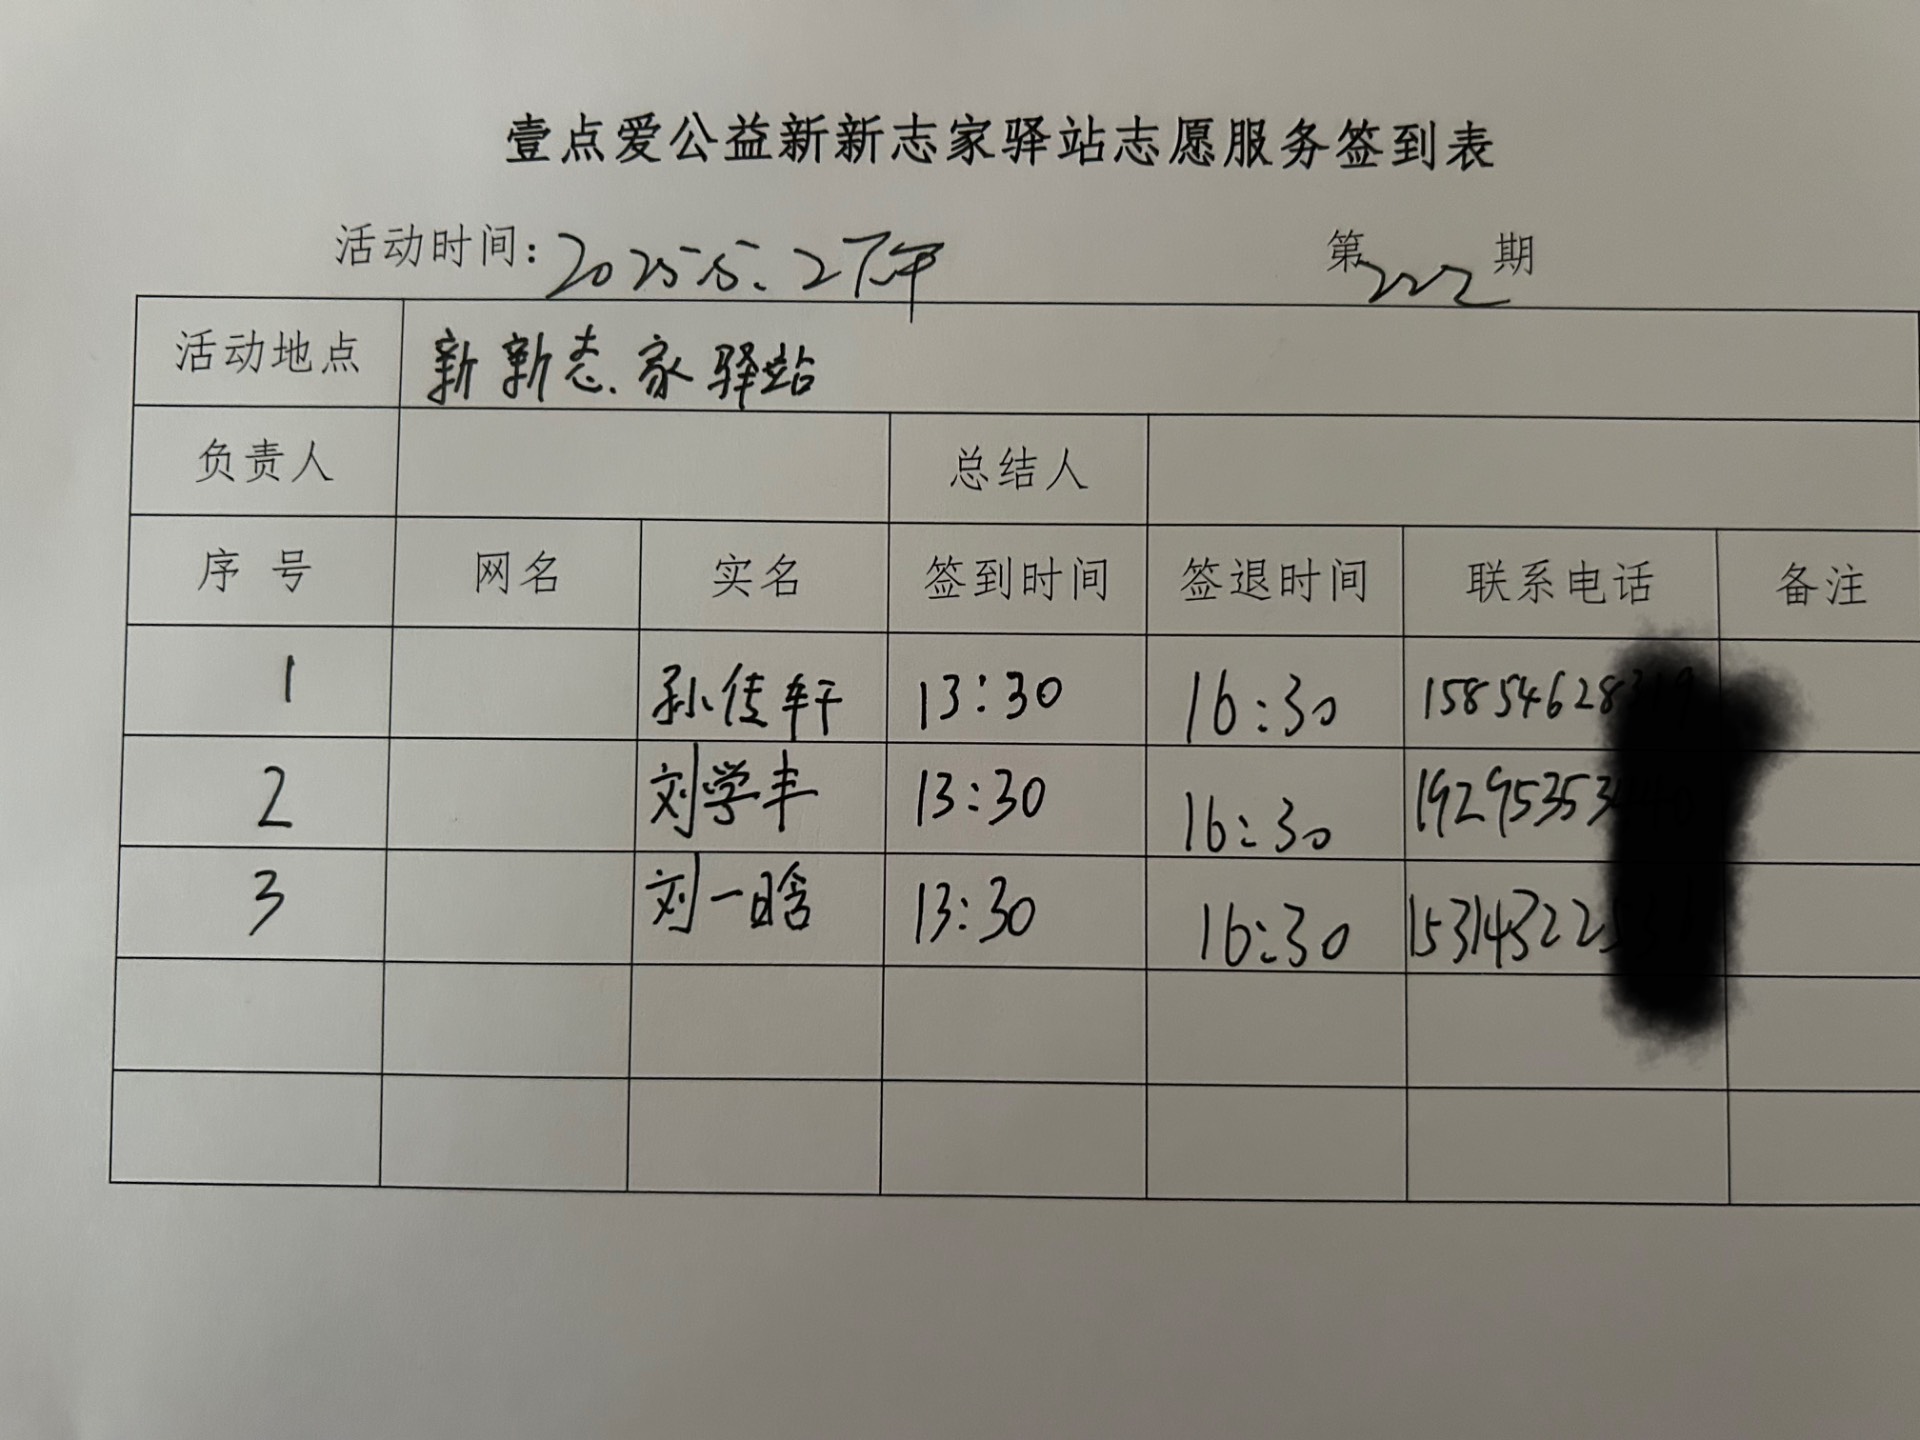 壹点爱公益新新志家驿站志愿服务签到表
活动时间：2025.5.27年 第222期
活动地点 新新志家驿站
负责人 总结人
序号 网名 实名 签到时间 签退时间 联系电话 备注
1 孙传轩 13:30 16:30 15854628
2 刘学丰 13:30 16:30 19295353
3 刘一晗 13:30 16:30 153143225